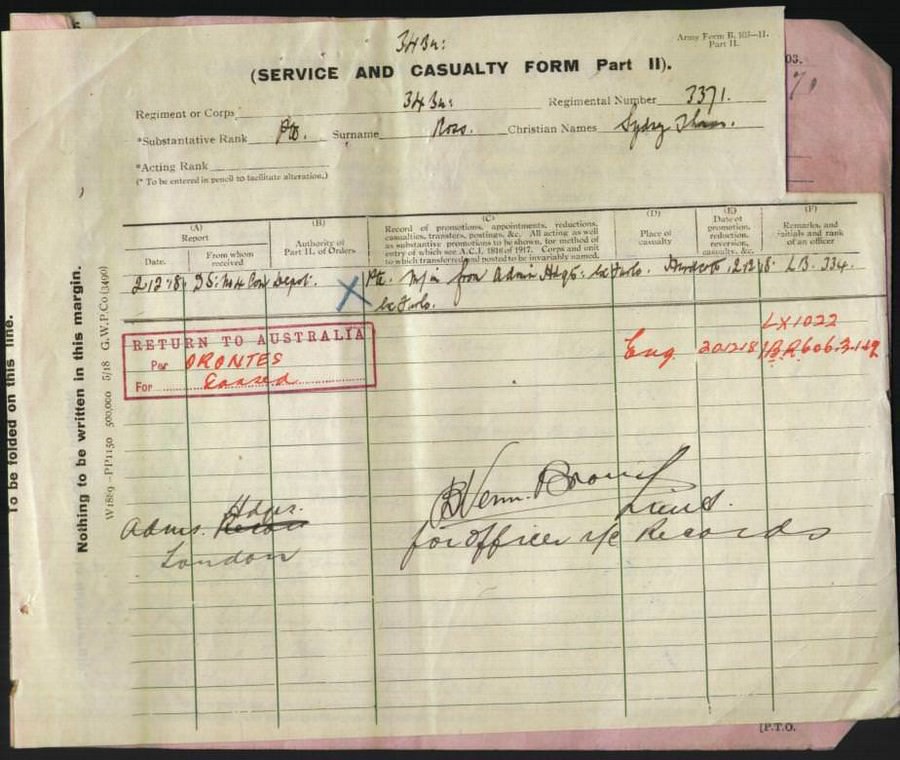 34 Bn:
Army Form B. 103—II.
Part II.
(SERVICE AND CASUALTY FORM Part II).
Regiment or Corps 34 Bn: Regimental Number 3371.
*Substantive Rank Pte. Surname Ross. Christian Names Sydney Thos.
*Acting Rank
(* To be entered in pencil to facilitate alteration.)
(A)
Report
Date.
From whom received
(B)
Authority of
Part II. of Orders
(C)
Record of promotions, appointments, reductions,
casualties, transfers, postings, &c. All acting as well
as substantive promotions to be shown, for method of
entry of which see A.C.I. 1816 of 1917. Corps and unit
to which transferred or posted to be invariably named.
(D)
Place of
casualty
(E)
Date of
promotion,
reduction,
reversion,
casualty, &c.
(F)
Remarks, and
initials and rank
of an officer
2.12.18 No 4 Con Depot. Pte. M/in from Admin Hdqs. ex Furlo. Hurdcott 2.12.18. LB. 334.
ex Furlo.
RETURN TO AUSTRALIA
Per ORONTES
For
LX1022
Eng 20.12.18
Hdqrs.
Adms. Record
London
B Venn. Brown
Lieut.
for Officer i/c Records
[P.T.O.
To be folded on this line.
Nothing to be written in this margin.
500,000 5/18 G.W.P.Co (3490)
03.